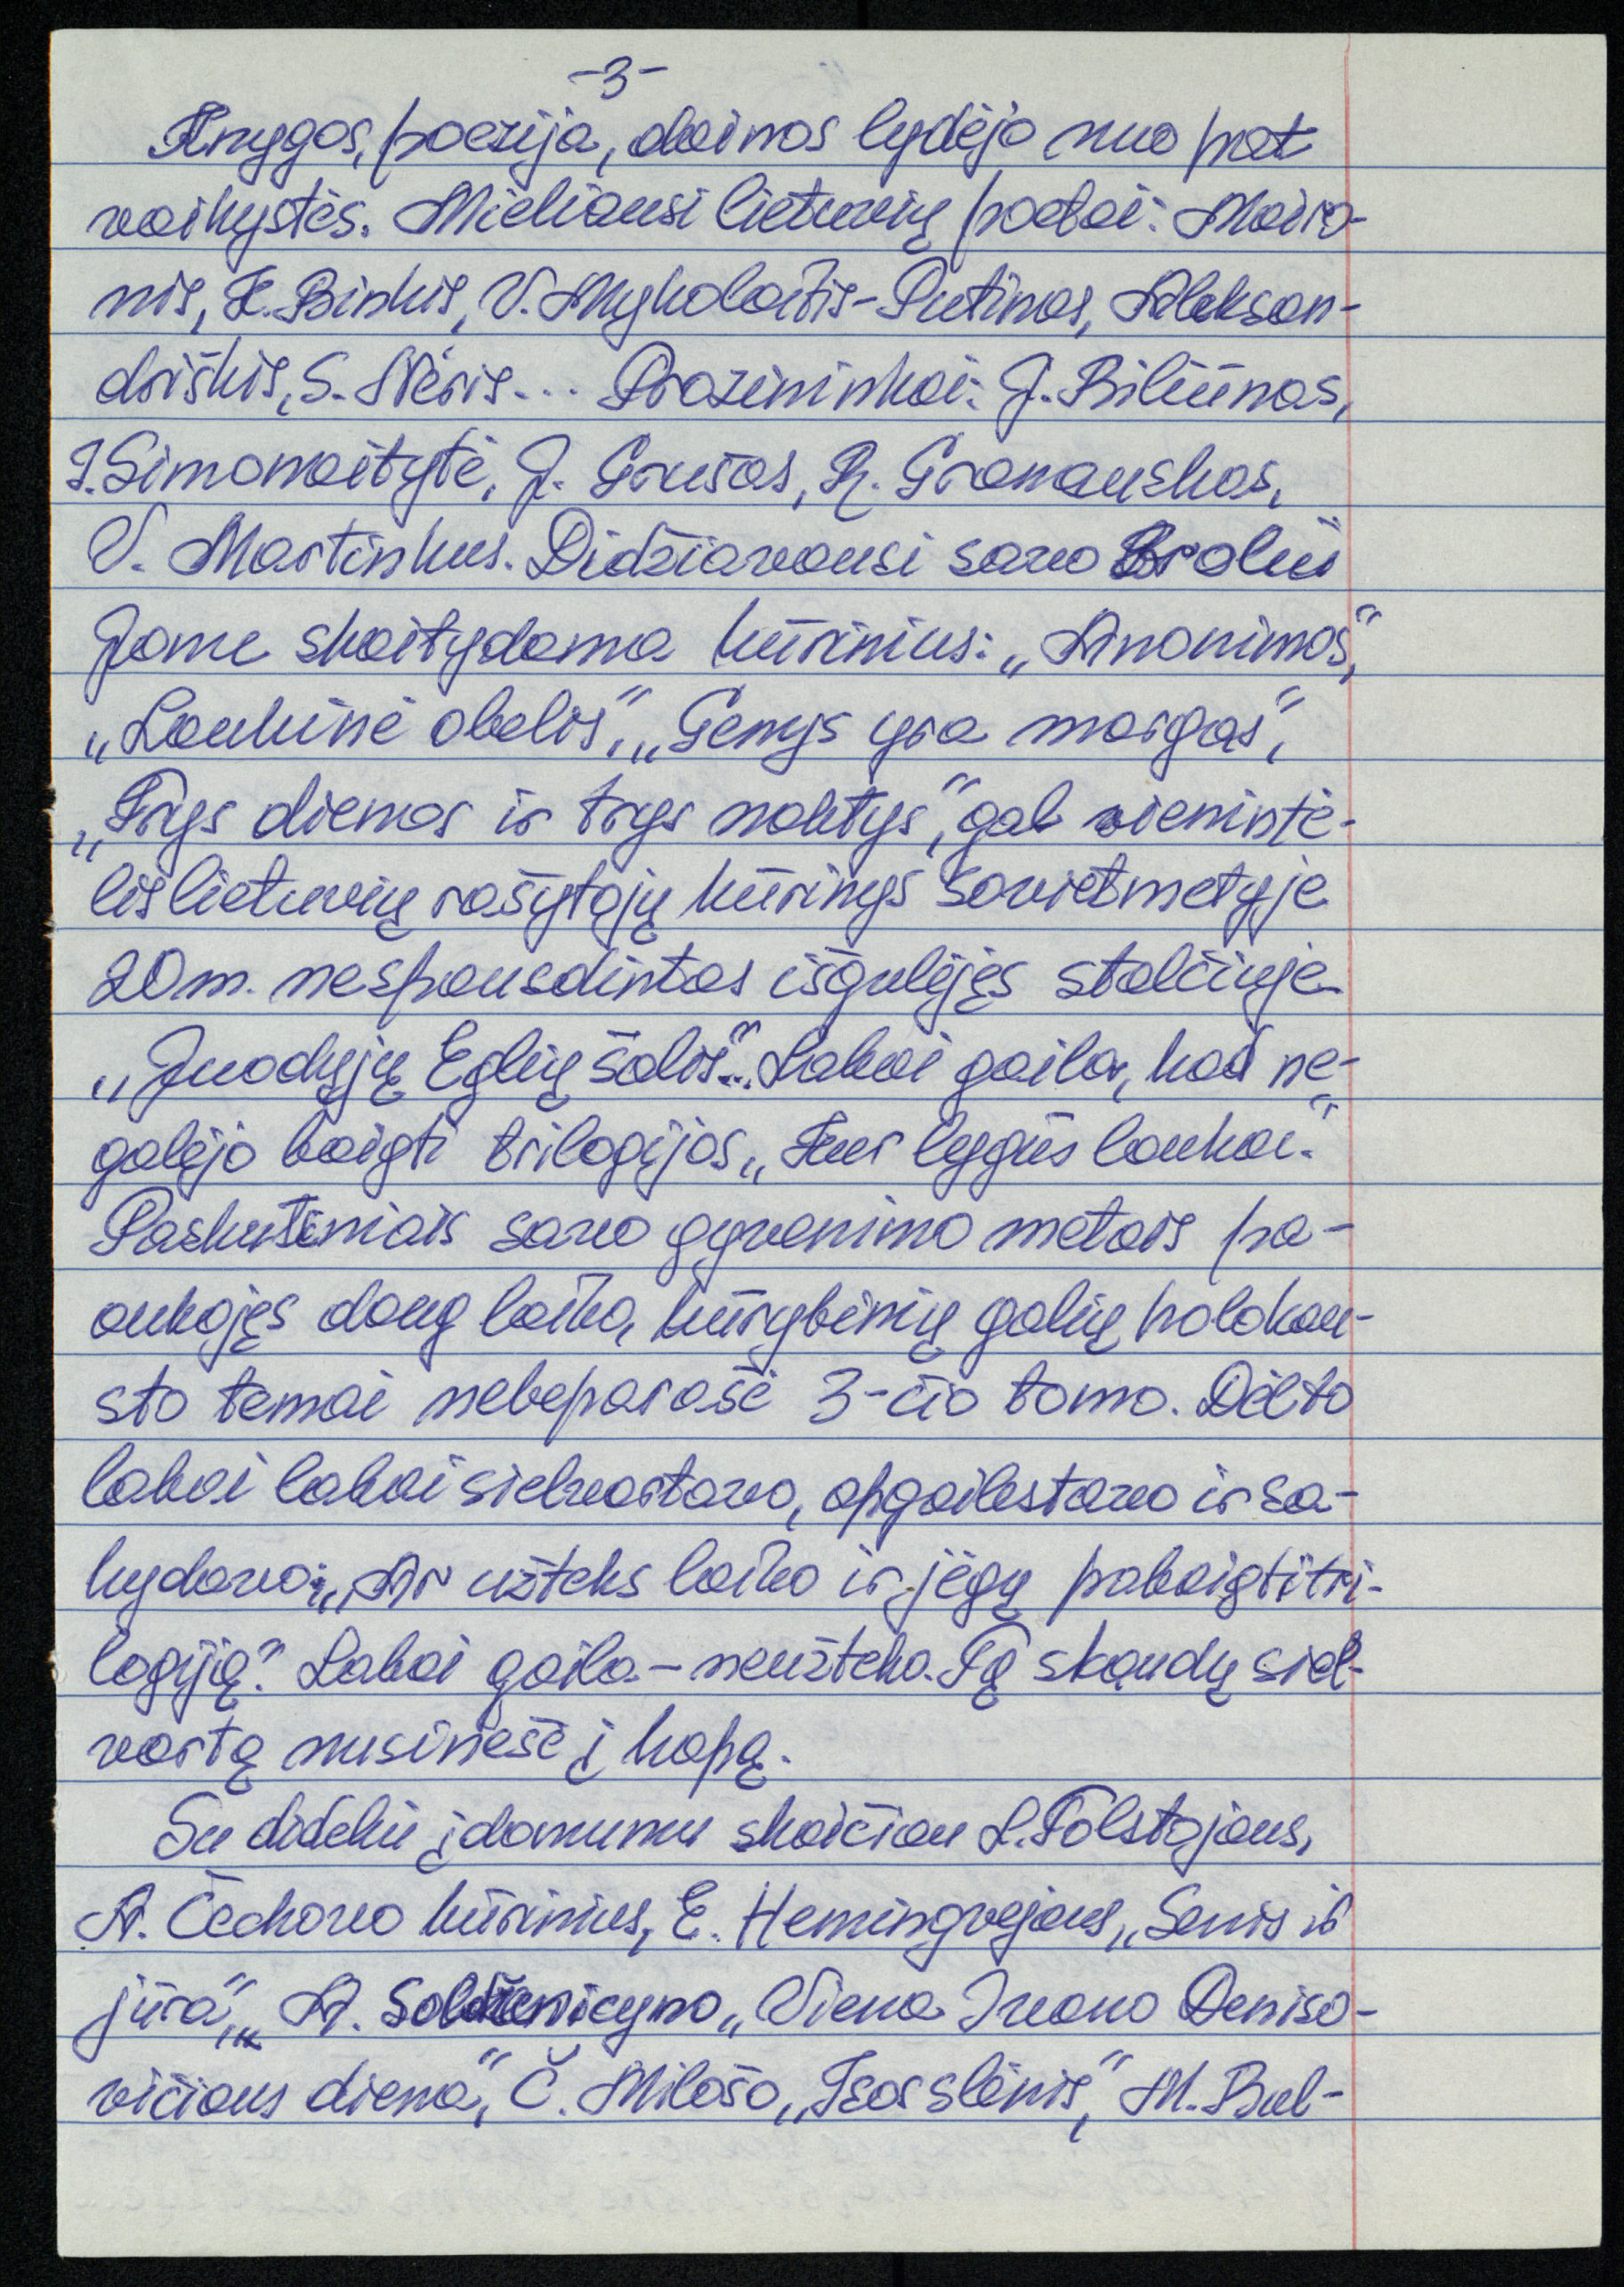 -3-
Knygos, poezija, dainos lydėjo nuo pat
vaikystės. Mieliausi lietuvių poetai: Mairo-
nis, K. Binkis, V. Mykolaitis-Putinas, Aleksan-
driškis, S. Nėris... Prozininkai: J. Biliūnas,
I. Simonaitytė, J. Grušas, R. Granauskas,
V. Martinkus. Didžiavausi savo Broliu
Jame skaitydama kūrinius: „Anonimas“,
„Laukinė obelis“, „Genys yra margas“,
„Trys dienos ir trys naktys“, gal vienintė-
lis lietuvių rašytojų kūrinys sovietmetyje
20 m. nespausdintas išgulėjęs stalčiuje
„Juodųjų Eglių šalis“... Labai gaila, kad ne-
galėjo baigti trilogijos „Kur lygūs laukai“.
Paskutiniais savo gyvenimo metais pa-
aukojęs daug laiko, kūrybinių galių holokau-
sto temai nebeparašė 3-čio tomo. Dėl to
labai labai sielvartavo, apgailestavo ir sa-
kydavo: „Ar užteks laiko ir jėgų pabaigti tri-
logiją?“ Labai gaila – neužteko. Tą skaudų siel-
vartą nusinešė į kapą.
Su dideliu įdomumu skaičiau L. Tolstojaus,
A. Čechovo kūrinius, E. Hemingvejaus „Senis ir
jūra“, „ A. Solženicyno „Viena Ivano Deniso-
vičiaus diena“, Č. Milošo „Isos slėnis“, M. Bul-